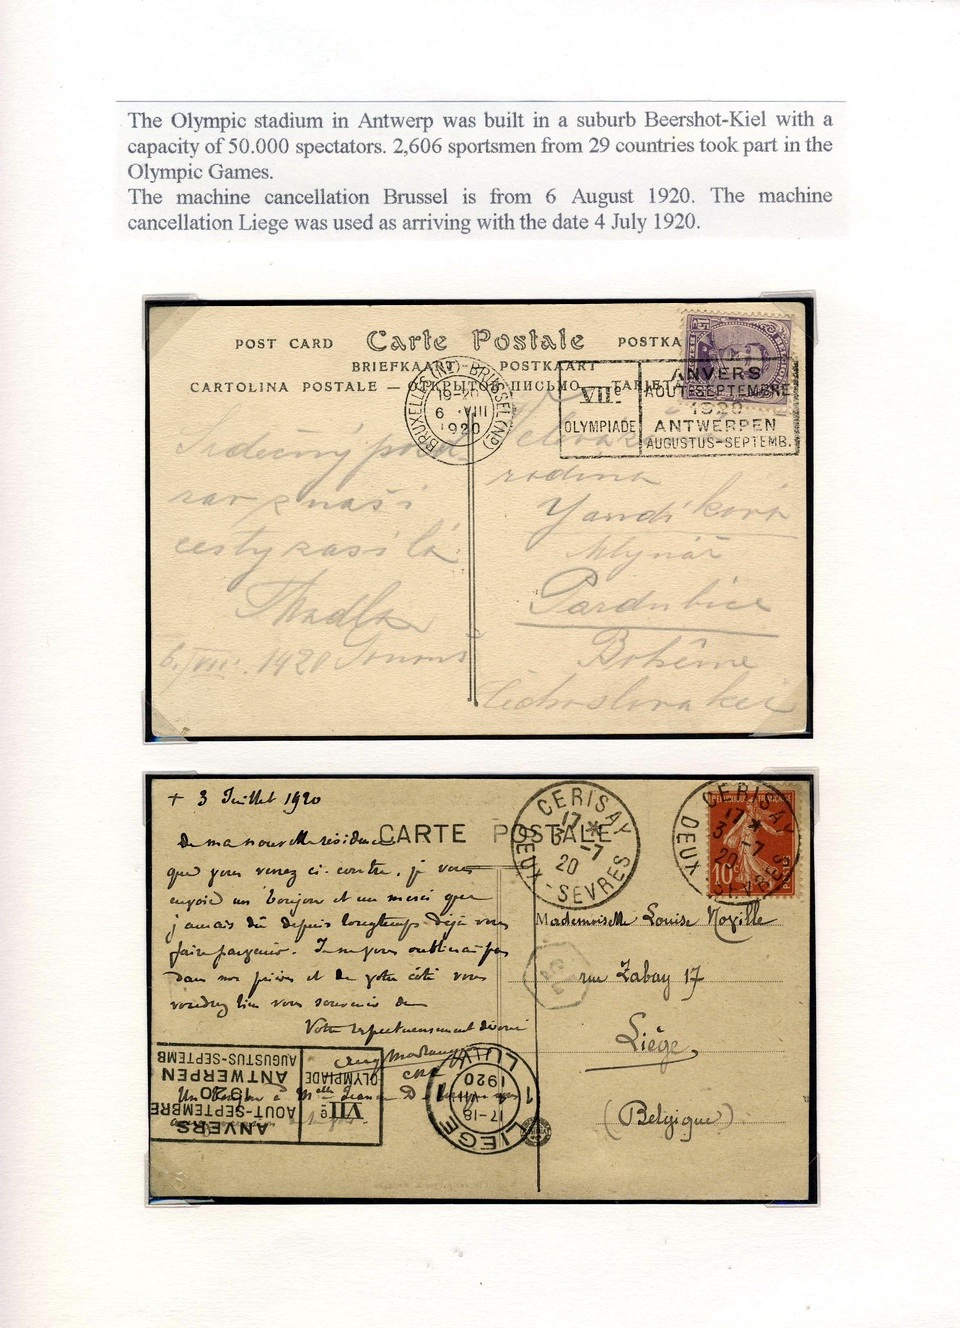 The Olympic stadium in Antwerp was built in a suburb Beershot-Kiel with a
capacity of 50.000 spectators. 2,606 sportsmen from 29 countries took part in the
Olympic Games.
The machine cancellation Brussel is from 6 August 1920. The machine
cancellation Liege was used as arriving with the date 4 July 1920.
POST CARD Carte Postale POSTKA
BRIEFKAART - POSTKAART
CARTOLINA POSTALE — ОТКРЫТОЕ ПИСЬМО — TARJETA
BRUXELLES (N.) - BRUSSEL (N.)
19-20
6 VIII
1920
VIIe
OLYMPIADE
ANVERS
AOUT-SEPTEMBRE
1920
ANTWERPEN
AUGUSTUS-SEPTEMB.
15
Srdečný pozd
rav z naší
cesty zasílá
rodina
Mlynář
Pardubice
Bohême
Čechoslovakei
6./VIII. 1920
+ 3 Juillet 1920
CARTE POSTALE
De ma nouvelle résidence
que vous voyez ci-contre, je vous
envoie un bonjour et un merci que
j'aurais dû depuis longtemps déjà vous
faire parvenir. Je ne vous oublierai pas
dans mes prières et de votre côté vous
voudrez bien vous souvenir de
Votre respectueusement dévoué
CERISAY
17 *
3 -7
20
DEUX-SEVRES
CERISAY
17 *
3 -7
20
DEUX-SEVRES
10c
POSTES
Mademoiselle Louise Noville
rue Zabay 17
Liège
(Belgique)
VIIe
OLYMPIADE
ANVERS
AOUT-SEPTEMBRE
1920
ANTWERPEN
AUGUSTUS-SEPTEMB
LIEGE 1 LUIK 1
17-18
1920